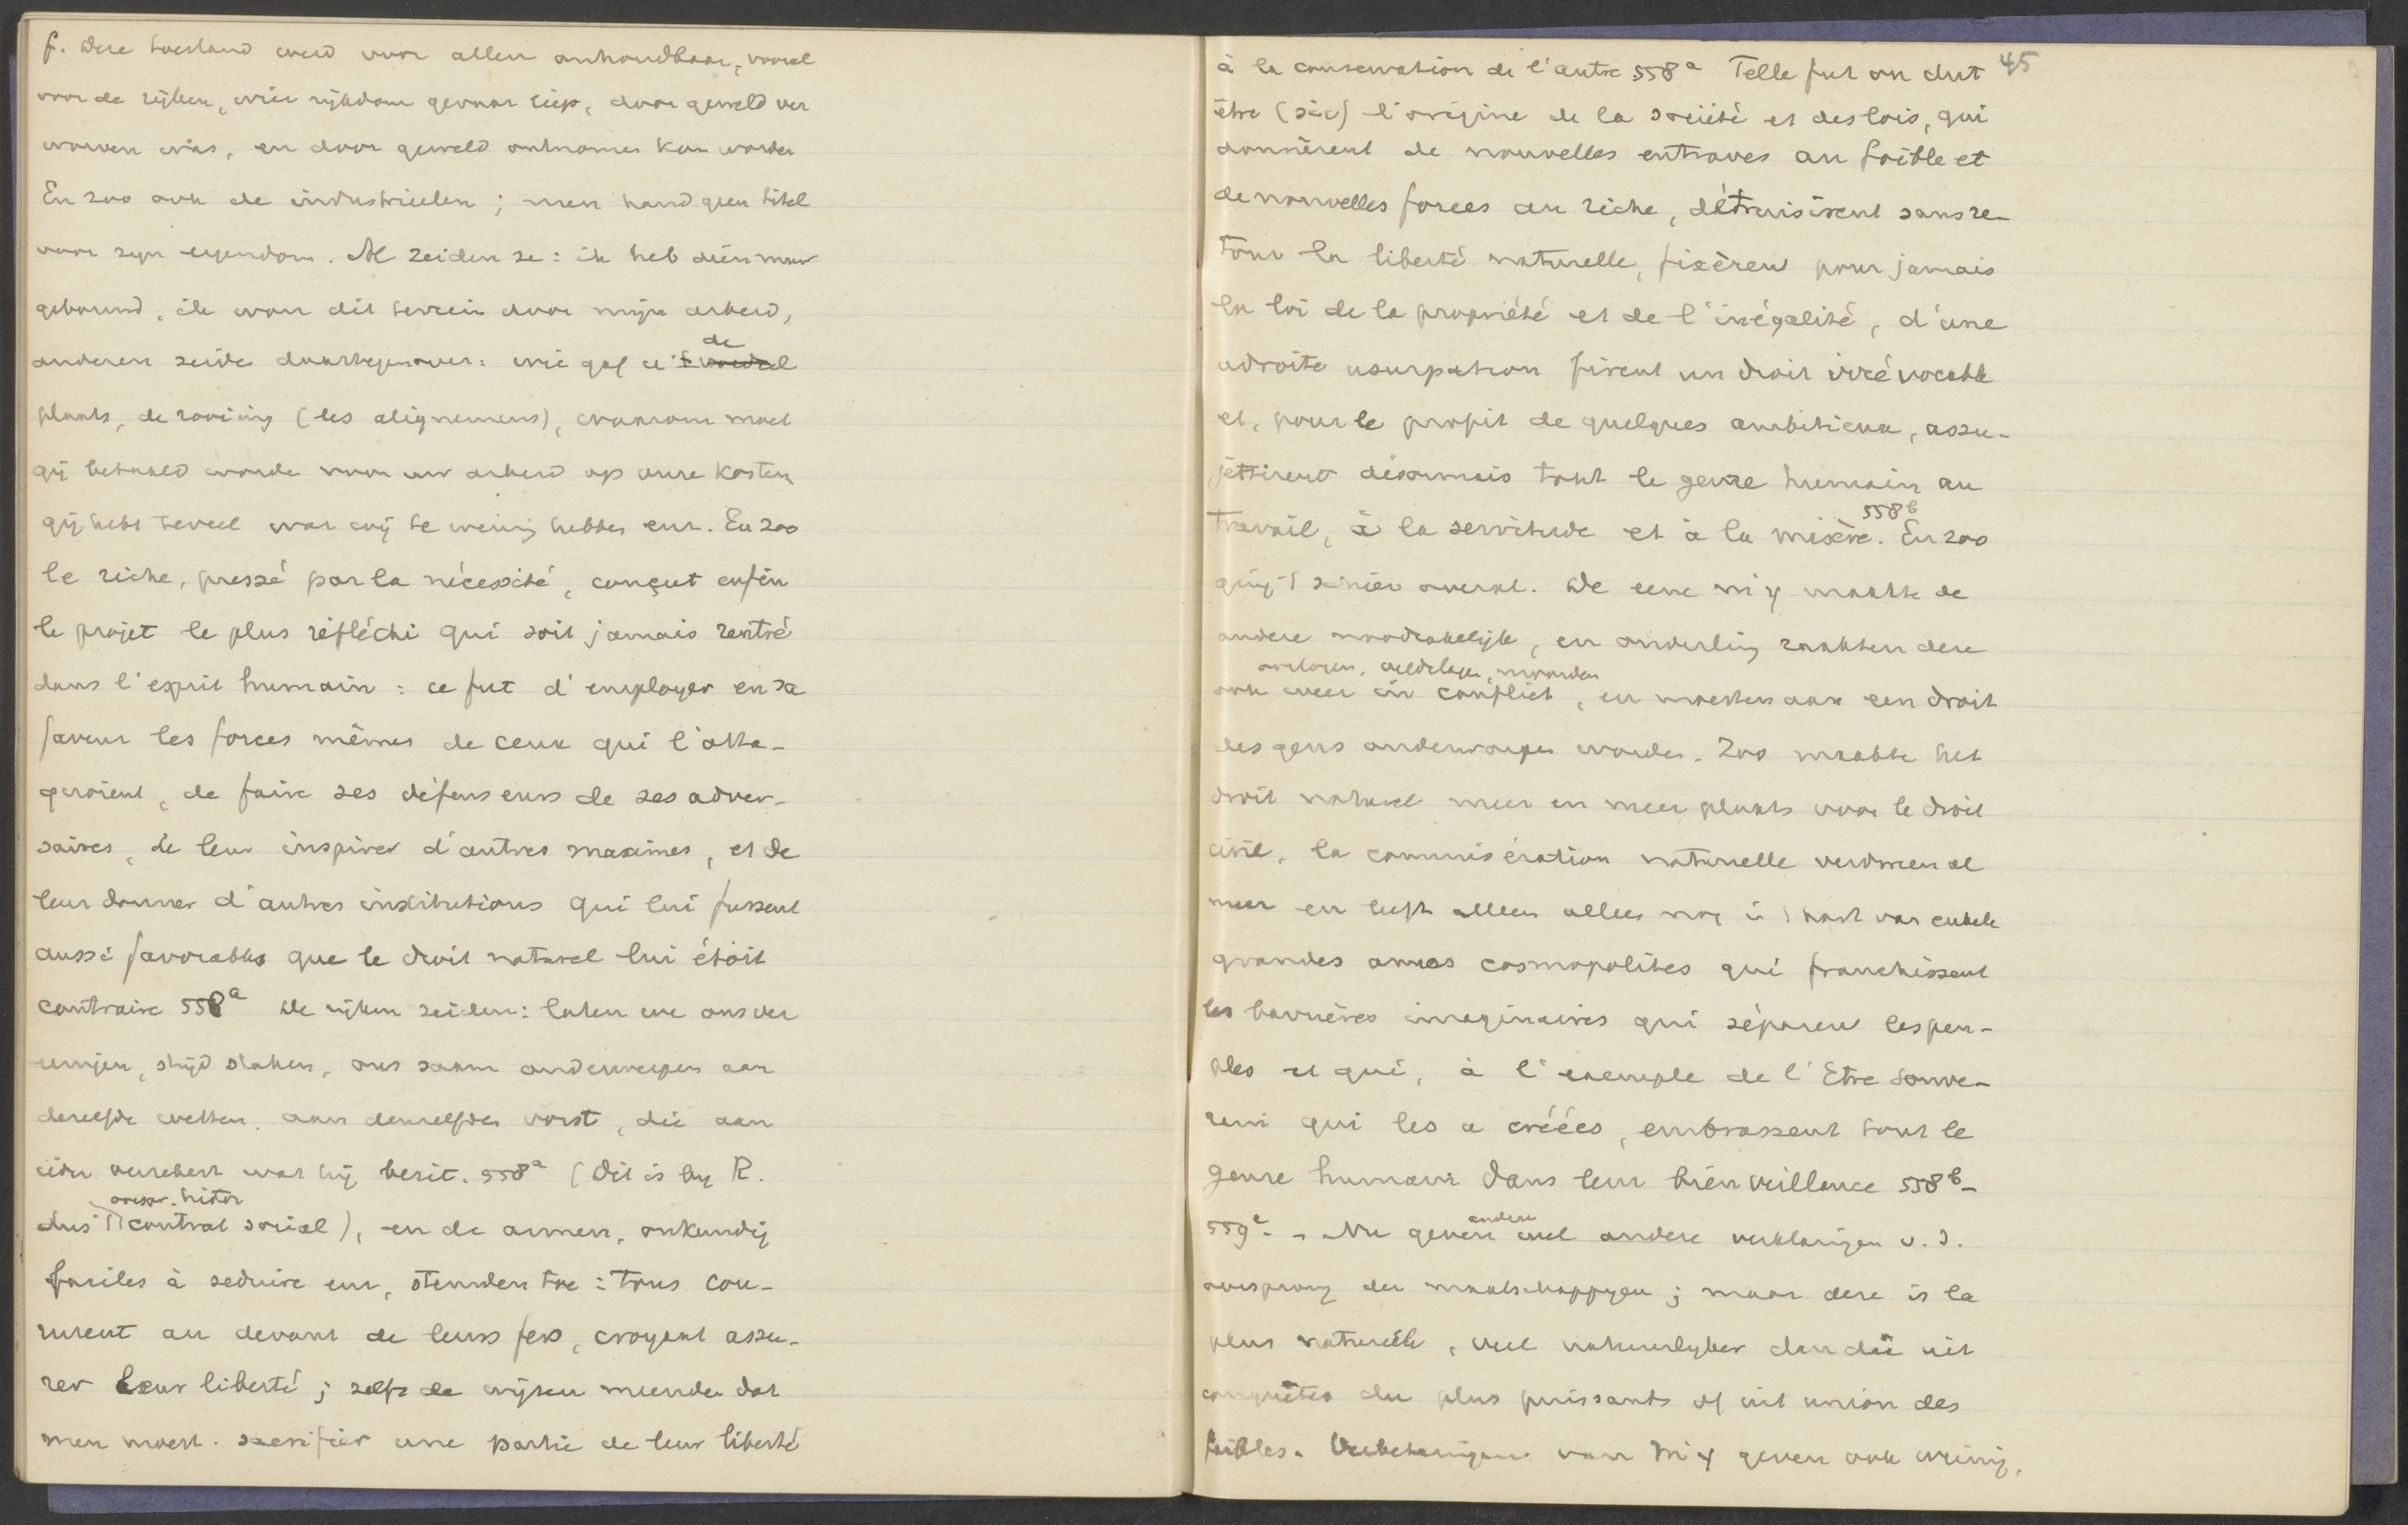 f. Deze toestand werd voor allen onhoudbaar, vooral
voor de rijken, wier rijkdom gevaar liep, door geweld ver
worven was, en door geweld ontnomen kon worden
En zoo ook de industrieelen; men had geen titel
voor zijn eigendom. Al zeiden ze: ik heb dien muur
gebouwd, ik won dit terrein door mijn arbeid,
de
anderen zeiden daartegenover: wie gaf u
plaats, de rooiing (les alignemens), waarom moet
gij betaald worden voor uw arbeid op onze kosten
gij hebt teveel wat wij te weinig hebben enz. En zoo
le riche, pressé par la nécessité, conçut enfin
le projet le plus réfléchi qui soit jamais rentré
dans l'esprit humain: ce fut d'employer en sa
faveur les forces mêmes de ceux qui l'atta-
quoient, de faire ses défenseurs de ses adver-
saires, de leur inspirer d'autres maximes, et de
leur donner d'autres institutions qui lui fussent
aussi favorables que le droit naturel lui étoit
contraire 558a De rijken zeiden: laten we ons ver
eenigen, strijd staken, ons saam onderwerpen aan
dezelfde wetten, aan denzelfden vorst, die aan
ieder verzekert wat hij bezit. 558a (Dit is bij R.
oorspr. histor
dus contrat social), en de armen, onkundig
faciles à seduire enz, stemden toe: tous cou-
rurent au devant de leurs fers, croyant assu-
rer leur liberté; zelfs de wijzen meenden dat
men moest. sacrifier une partie de leur liberté
45
à la conservation de l'autre 558a Telle fut ou dut
être (sic) l'origine de la société et des lois, qui
donnèrent de nouvelles entraves au foible et
de nouvelles forces au riche, détruisirent sans re-
tour la liberté naturelle, fixèrent pour jamais
la loi de la propriété et de l'inégalité, d'une
adroite usurpation firent un droit irrévocable
et, pour le profit de quelques ambitieux, assu-
jettirent désormais tout le genre humain au
558b
travail, à la servitude et à la misère. En zoo
ging 't overal. De eene mij maakte de
andere noodzakelijk, en onderling raakten deze
oorlogen, veldslagen, moorden
ook weer in conflict, en moesten aan een droit
des gens onderworpen worden. Zoo maakte het
droit naturel meer en meer plaats voor le droit
civil, la commisération naturelle verdween al
meer en leeft alleen nog in 't hart van enkele
grandes ames cosmopolites qui franchissent
les barrières imaginaires qui séparent les peu-
ples et qui, à l'exemple de l'Etre souve-
rein qui les a créées, embrassent tout le
genre humain dans leur bienveillance 558b-
andere
559a. - Nu geven wel andere verklaringen v. d.
oorsprong der maatschappijen; maar deze is la
plus naturelle, veel natuurlijker dan die uit
conquêtes du plus puissants of uit union des
foibles. Verbeteringen van mij geven ook weinig,